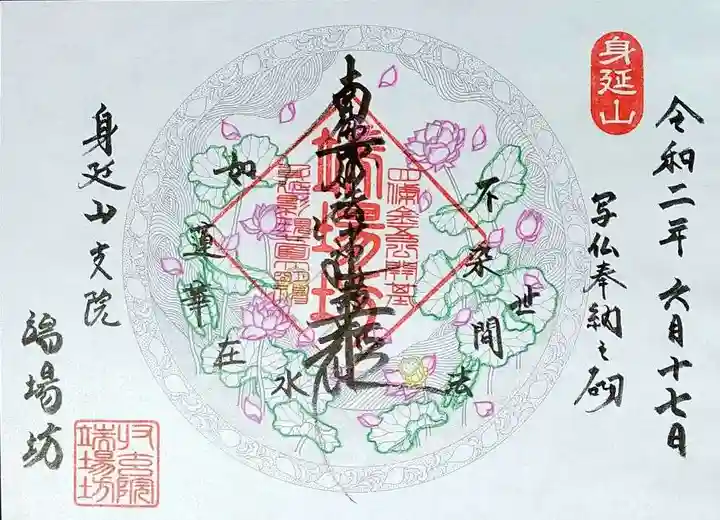 身延山
令和二年 六月十七日
写仏奉納之砌
不染世間法
南無妙法蓮華経
端場坊
如蓮華在水
身延山支院
端場坊
端場坊